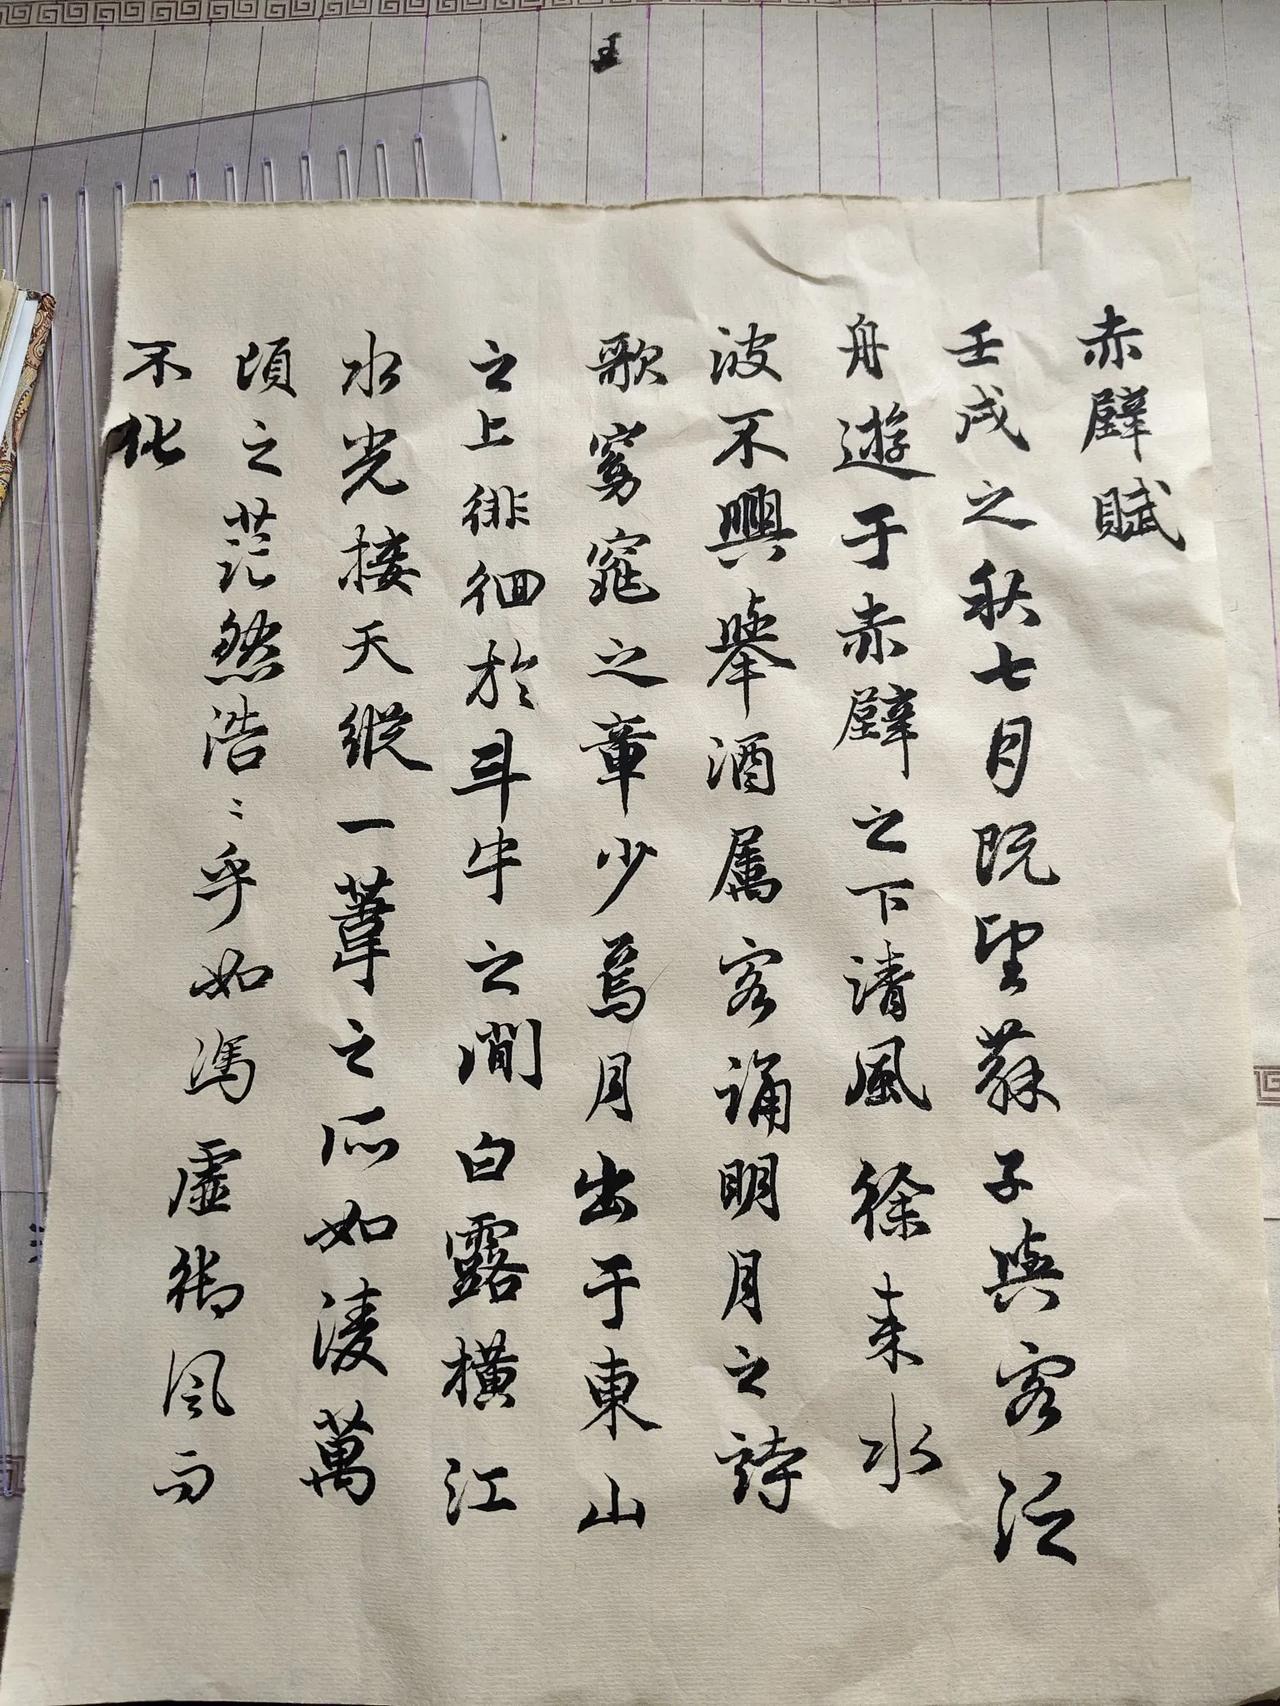 赤壁賦
壬戌之秋七月既望蘇子與客泛
舟遊于赤壁之下清風徐来水
波不興舉酒属客誦明月之詩
歌窈窕之章少焉月出于東山
之上徘徊於斗牛之間白露橫江
水光接天縱一葦之所如淩萬
頃之茫然浩〻乎如馮虛御風而
不化
王